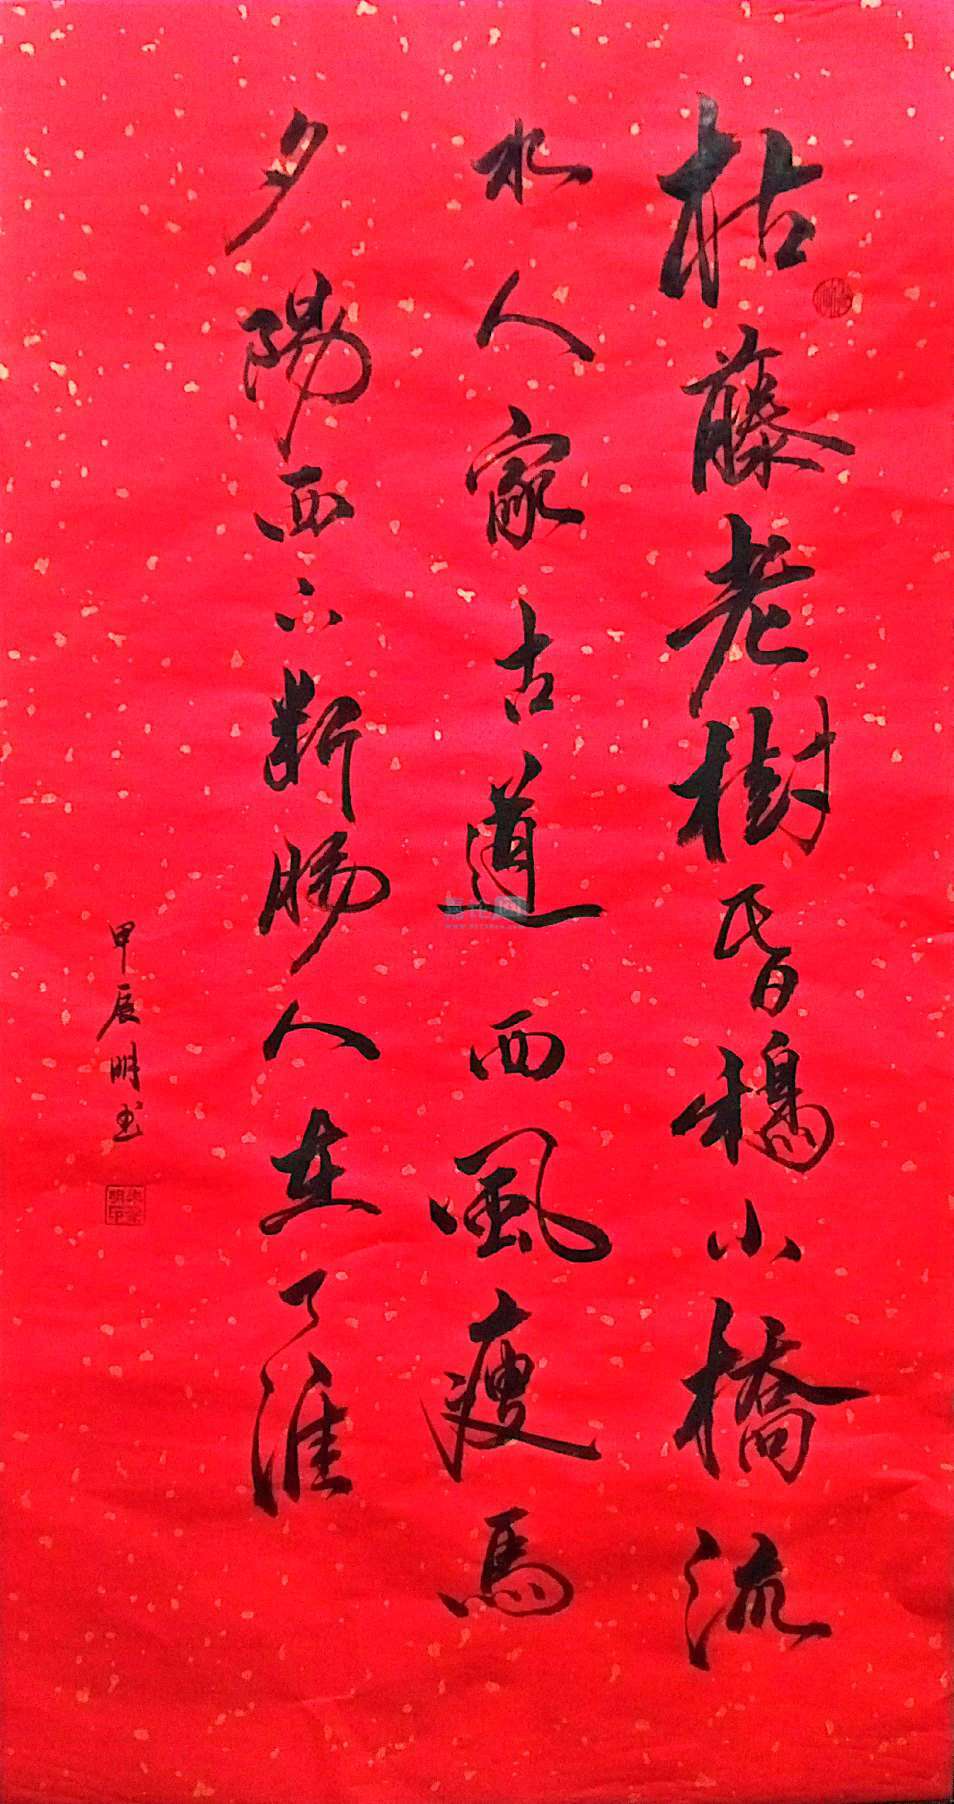 枯藤老樹昏鴉小橋流
水人家古道西風瘦馬
夕陽西下斷腸人在天涯
甲辰明玉